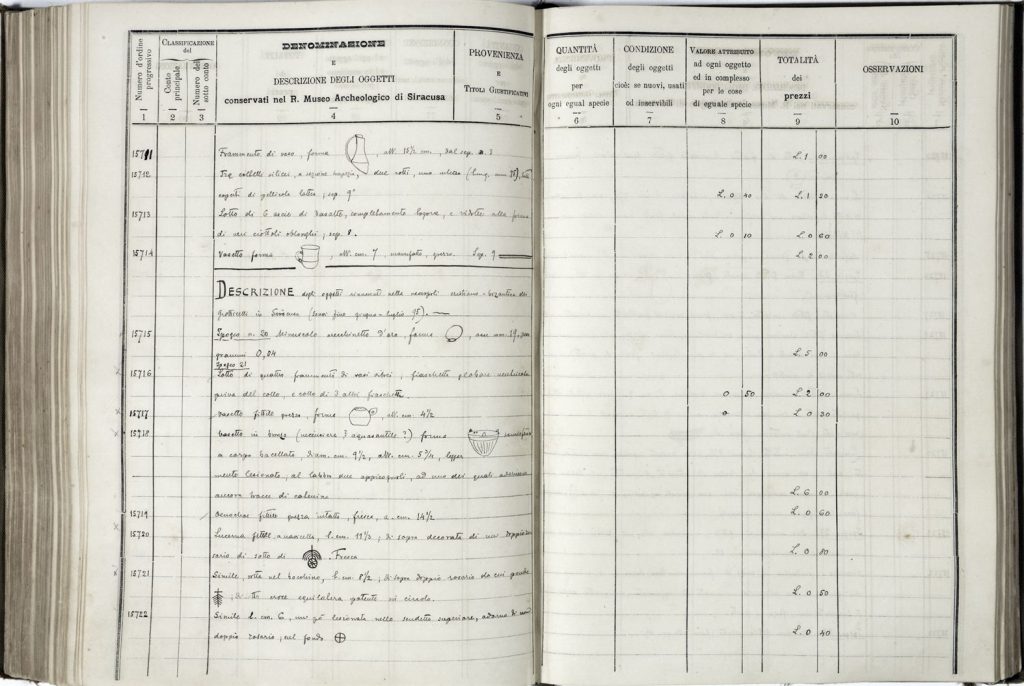 Numero d'ordine progressivo
CLASSIFICAZIONE del
Conto principale
Numero del sotto conto
DENOMINAZIONE
E
DESCRIZIONE DEGLI OGGETTI
conservati nel R. Museo Archeologico di Siracusa
PROVENIENZA
E
TITOLI GIUSTIFICATIVI
QUANTITÀ
degli oggetti
per
ogni egual specie
CONDIZIONE
degli oggetti
cioè: se nuovi, usati
od inservibili
VALORE ATTRIBUITO
ad ogni oggetto
ed in complesso
per le cose
di eguale specie
TOTALITÀ
dei
prezzi
OSSERVAZIONI
1 2 3 4 5 6 7 8 9 10
15711 Frammento di vaso, forma , alt. 15½ cm., dal sep. 3 L. 1 00
15712 Tre coltelli silicei, a sezione trapezia, due rotti, uno intero
coperti di pellicola lattea, sep. 9° L. 0 40 L. 1 20
15713 Lotto di 6 accie di basalto, completamente logore, e ridotte alla forma
di veri ciottoli oblonghi, sep. 8. L. 0 10 L. 0 60
15714 Vasetto forma , alt. cm. 7, manifesto, grezzo. Sep. 9 L. 2 00
DESCRIZIONE degli oggetti rinvenuti nella necropoli cristiano-bizantina dei
grotticelli in Siracusa (scavi fine giugno-luglio 95).
15715 Ipogeo n. 20 Minuscolo orecchinetto d'oro, forma , mm. 19,
grammi 0,04 L. 5 00
Ipogeo 21
15716 Lotto di quattro frammenti di vasi vitrei, fiaschetta globare
priva del collo, e collo di 3 altri fiaschetti. 0 50 L. 2 00
15717 Vasetto fittile grezzo, forma , alt. cm. 4½ L. 0 30
15718 Vasetto in bronzo (incensiere? aquasantile?) forma
a corpo baccellato, diam. cm. 9½, alt. cm. 5¾, legger
mente lesionato, al labbro due appiccagnoli, ad uno dei quali
ancora tracce di catenina L. 6 00
15719 Oenochoe fittile grezza intatta, fresca, a. cm. 14½ L. 0 60
15720 Lucerna fittile , l. cm. 11½; di sopra decorata di un doppio
sario di sotto di . Fresca L. 0 80
15721 Simile, rotta nel becchino, l. cm. 8½; di sopra doppio rosario
; di croce equilatera potente in circolo. L. 0 50
15722 Simile l. cm. 6, un po' lesionata nello scudetto superiore, adorna di
doppio rosario; nel fondo L. 0 40